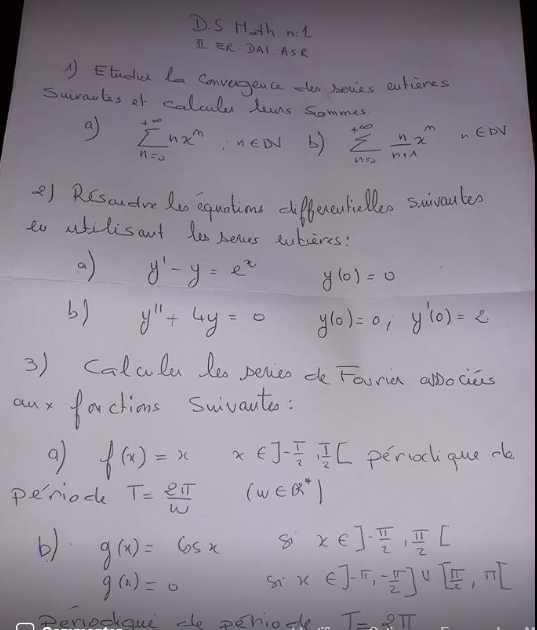 D.S Math n:1
II ER. DAI. ASR
1) Etudier la Convergence des series entières
Suivantes et calculer leurs Sommes.
a) \sum_{n=0}^{+\infty} n x^n ; n ∈ IN b) \sum_{n=0}^{+\infty} \frac{n}{n+1} x^n n ∈ IN
2) Résoudre les équations differentielles suivantes
en utilisant les series entières:
a) y' - y = e^x y(0) = 0
b) y'' + 4y = 0 y(0) = 0; y'(0) = 2
3) Calculer les series de Fourier associés
aux fonctions Suivantes:
a) f(x) = x x ∈ ]-\frac{π}{2}, \frac{π}{2}[ périodique de
période T = \frac{2π}{w} (w ∈ R*)
b) g(x) = Cos x si x ∈ ]-\frac{π}{2}, \frac{π}{2}[
g(x) = 0 si x ∈ ]-π, -\frac{π}{2}] ∪ [\frac{π}{2}, π[
périodique de période T = 2π